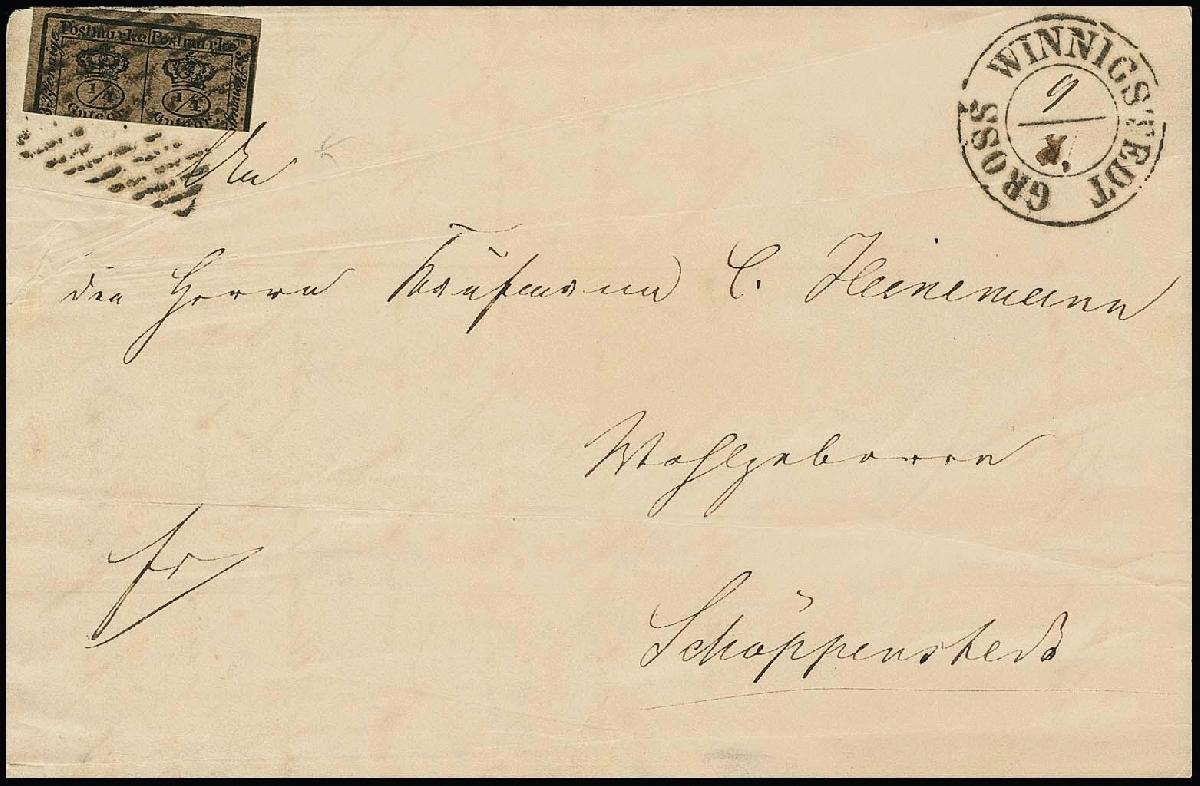 Postmarke Postmarke
1/4 1/4
Gutegr Gutegr
GROSS WINNIGSTEDT
9
An
den Herrn Kaufmann C. Heinemann
Wohlgeboren
fr
Schöppenstedt